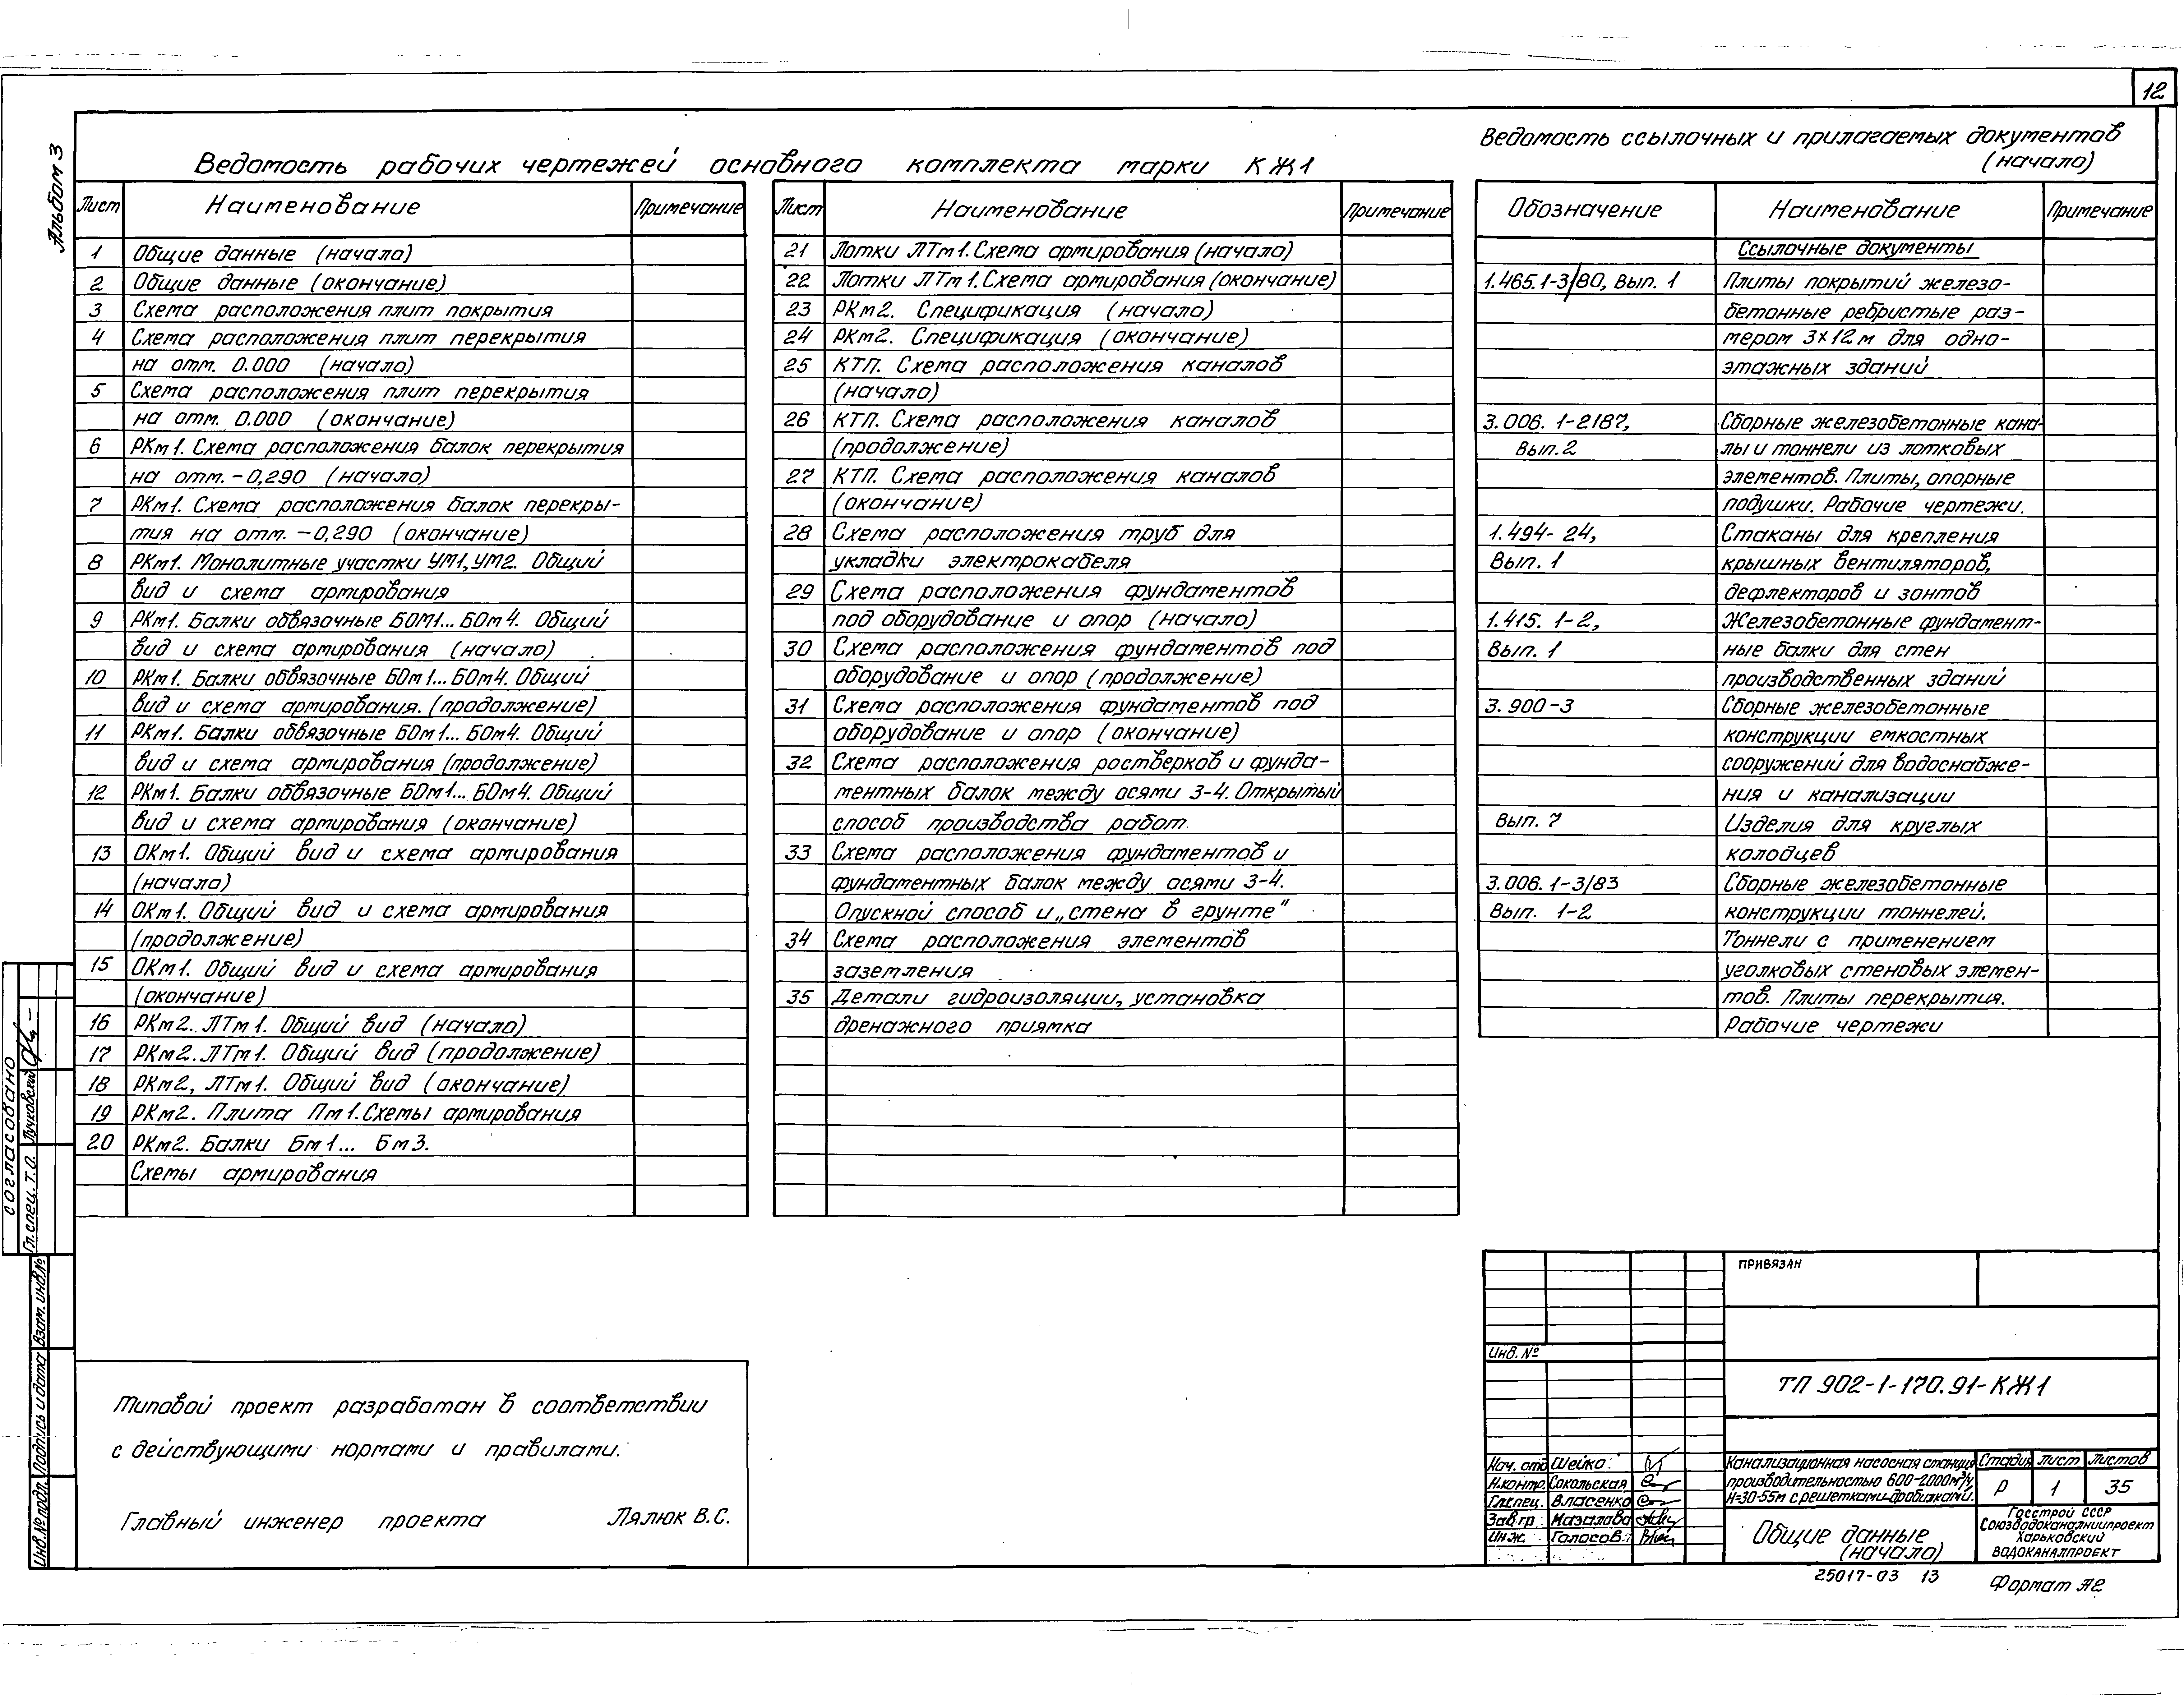 12
Альбом 3
Ведомость рабочих чертежей основного комплекта марки КЖ1
Лист Наименование Примечание
1 Общие данные (начало)
2 Общие данные (окончание)
3 Схема расположения плит покрытия
4 Схема расположения плит перекрытия
на отм. 0.000 (начало)
5 Схема расположения плит перекрытия
на отм. 0.000 (окончание)
6 РКм1. Схема расположения балок перекрытия
на отм. -0,290 (начало)
7 РКм1. Схема расположения балок перекры-
тия на отм. -0,290 (окончание)
8 РКм1. Монолитные участки УМ1, УМ2. Общий
вид и схема армирования
9 РКм1. Балки обвязочные БОМ1... БОм4. Общий
вид и схема армирования (начало)
10 РКм1. Балки обвязочные БОм1... БОм4. Общий
вид и схема армирования. (продолжение)
11 РКм1. Балки обвязочные БОм1... БОм4. Общий
вид и схема армирования (продолжение)
12 РКм1. Балки обвязочные БОм1... БОм4. Общий
вид и схема армирования (окончание)
13 ОКм1. Общий вид и схема армирования
(начало)
14 ОКм1. Общий вид и схема армирования
(продолжение)
15 ОКм1. Общий вид и схема армирования
(окончание)
16 РКм2. ЛТм1. Общий вид (начало)
17 РКм2. ЛТм1. Общий вид (продолжение)
18 РКм2, ЛТм1. Общий вид (окончание)
19 РКм2. Плита Пм1. Схемы армирования
20 РКм2. Балки Бм1... Бм3.
Схемы армирования
Лист Наименование Примечание
21 Лотки ЛТм1. Схема армирования (начало)
22 Лотки ЛТм1. Схема армирования (окончание)
23 РКм2. Спецификация (начало)
24 РКм2. Спецификация (окончание)
25 КТП. Схема расположения каналов
(начало)
26 КТП. Схема расположения каналов
(продолжение)
27 КТП. Схема расположения каналов
(окончание)
28 Схема расположения труб для
укладки электрокабеля
29 Схема расположения фундаментов
под оборудование и опор (начало)
30 Схема расположения фундаментов под
оборудование и опор (продолжение)
31 Схема расположения фундаментов под
оборудование и опор (окончание)
32 Схема расположения ростверков и фунда-
ментных балок между осями 3-4. Открытый
способ производства работ
33 Схема расположения фундаментов и
фундаментных балок между осями 3-4.
Опускной способ и „стена в грунте"
34 Схема расположения элементов
заземления
35 Детали гидроизоляции, установка
дренажного приямка
Ведомость ссылочных и прилагаемых документов
(начало)
Обозначение Наименование Примечание
Ссылочные документы
1.465.1-3/80, Вып. 1 Плиты покрытий железо-
бетонные ребристые раз-
мером 3х12м для одно-
этажных зданий
3.006. 1-2187, Сборные железобетонные кана-
Вып. 2 лы и тоннели из лотковых
элементов. Плиты, опорные
подушки. Рабочие чертежи.
1.494-24, Стаканы для крепления
Вып. 1 крышных вентиляторов,
дефлекторов и зонтов
1.415. 1-2, Железобетонные фундамент-
Вып. 1 ные балки для стен
производственных зданий
3.900-3 Сборные железобетонные
конструкции емкостных
сооружений для водоснабже-
ния и канализации
Вып. 7 Изделия для круглых
колодцев
3.006.1-3/83 Сборные железобетонные
Вып. 1-2 конструкции тоннелей.
Тоннели с применением
уголковых стеновых элемен-
тов. Плиты перекрытия.
Рабочие чертежи
согласовано
Гл. спец. Т.О. Лучковский
Инв. № подл. Подпись и дата Взам. инв. №
Типовой проект разработан в соответствии
с действующими нормами и правилами.
Главный инженер проекта Лялюк В.С.
ПРИВЯЗАН
Инв. №
ТП 902-1-170.91-КЖ1
Нач. отд Шейко
Н.контр. Сокольская
Гл.спец. Власенко
Зав гр. Мазалова
Инж. Голосов
Канализационная насосная станция
производительностью 600-2000м³/ч
Н=30-55м с решетками-дробилками.
Стадия Лист Листов
Р 1 35
Общие данные
(начало)
Госстрой СССР
Союзводоканалниипроект
Харьковский
ВОДОКАНАЛПРОЕКТ
25017-03 13
Формат А2